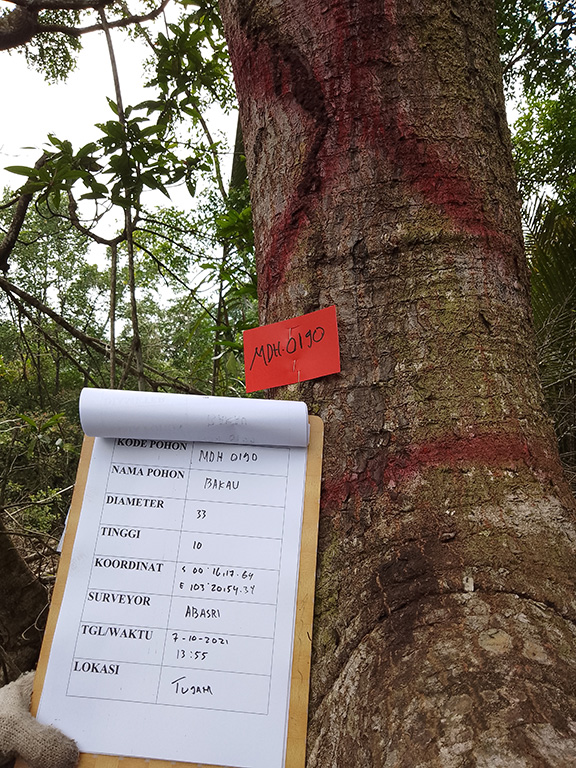 MDH-0190
KODE POHON MDH 0190
NAMA POHON BAKAU
DIAMETER 33
TINGGI 10
KOORDINAT S 00°16,17.64
E 103°20154.34
SURVEYOR ABASRI
TGL/WAKTU 7-10-2021
13:55
LOKASI